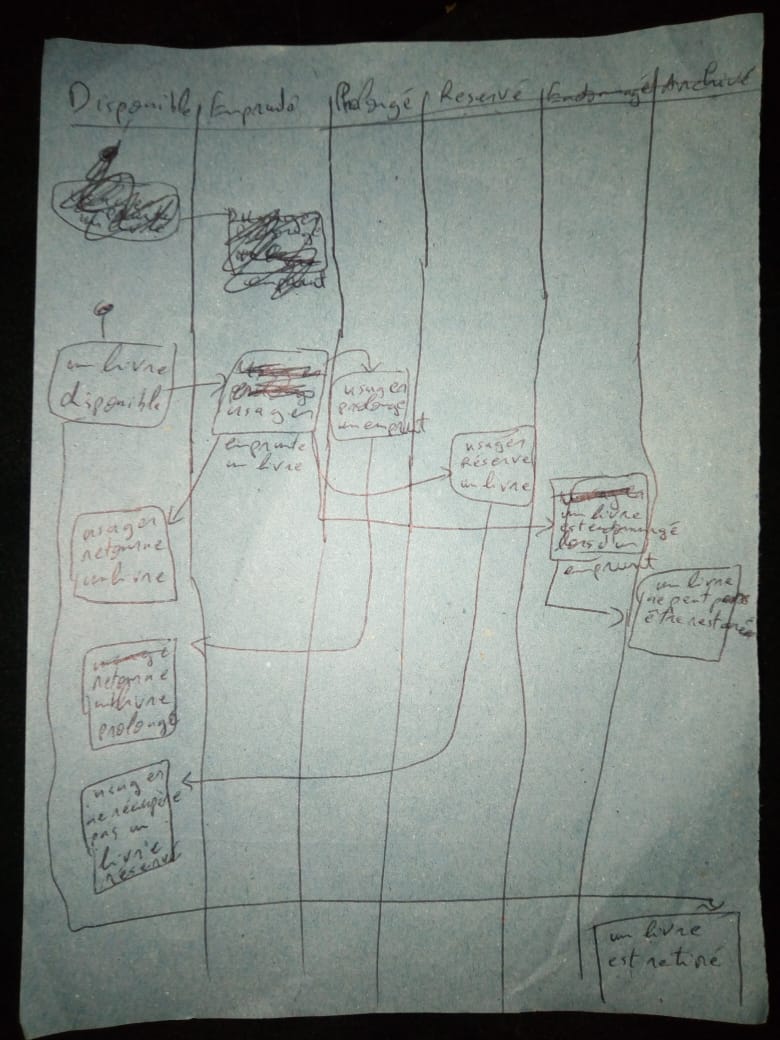 Disponible Emprunté Prolongé Reservé Endommagé Archivé
emprunt
un livre
disponible
usager
emprunte
un livre
usager
prolonge
un emprunt
usager
Réserve
un livre
un livre
est endommagé
lors d'un
emprunt
usager
retourne
un livre
un livre
ne peut pas
être restauré
retourne
un livre
prolongé
usager
ne récupère
pas un
livre
réservé
un livre
est retiré